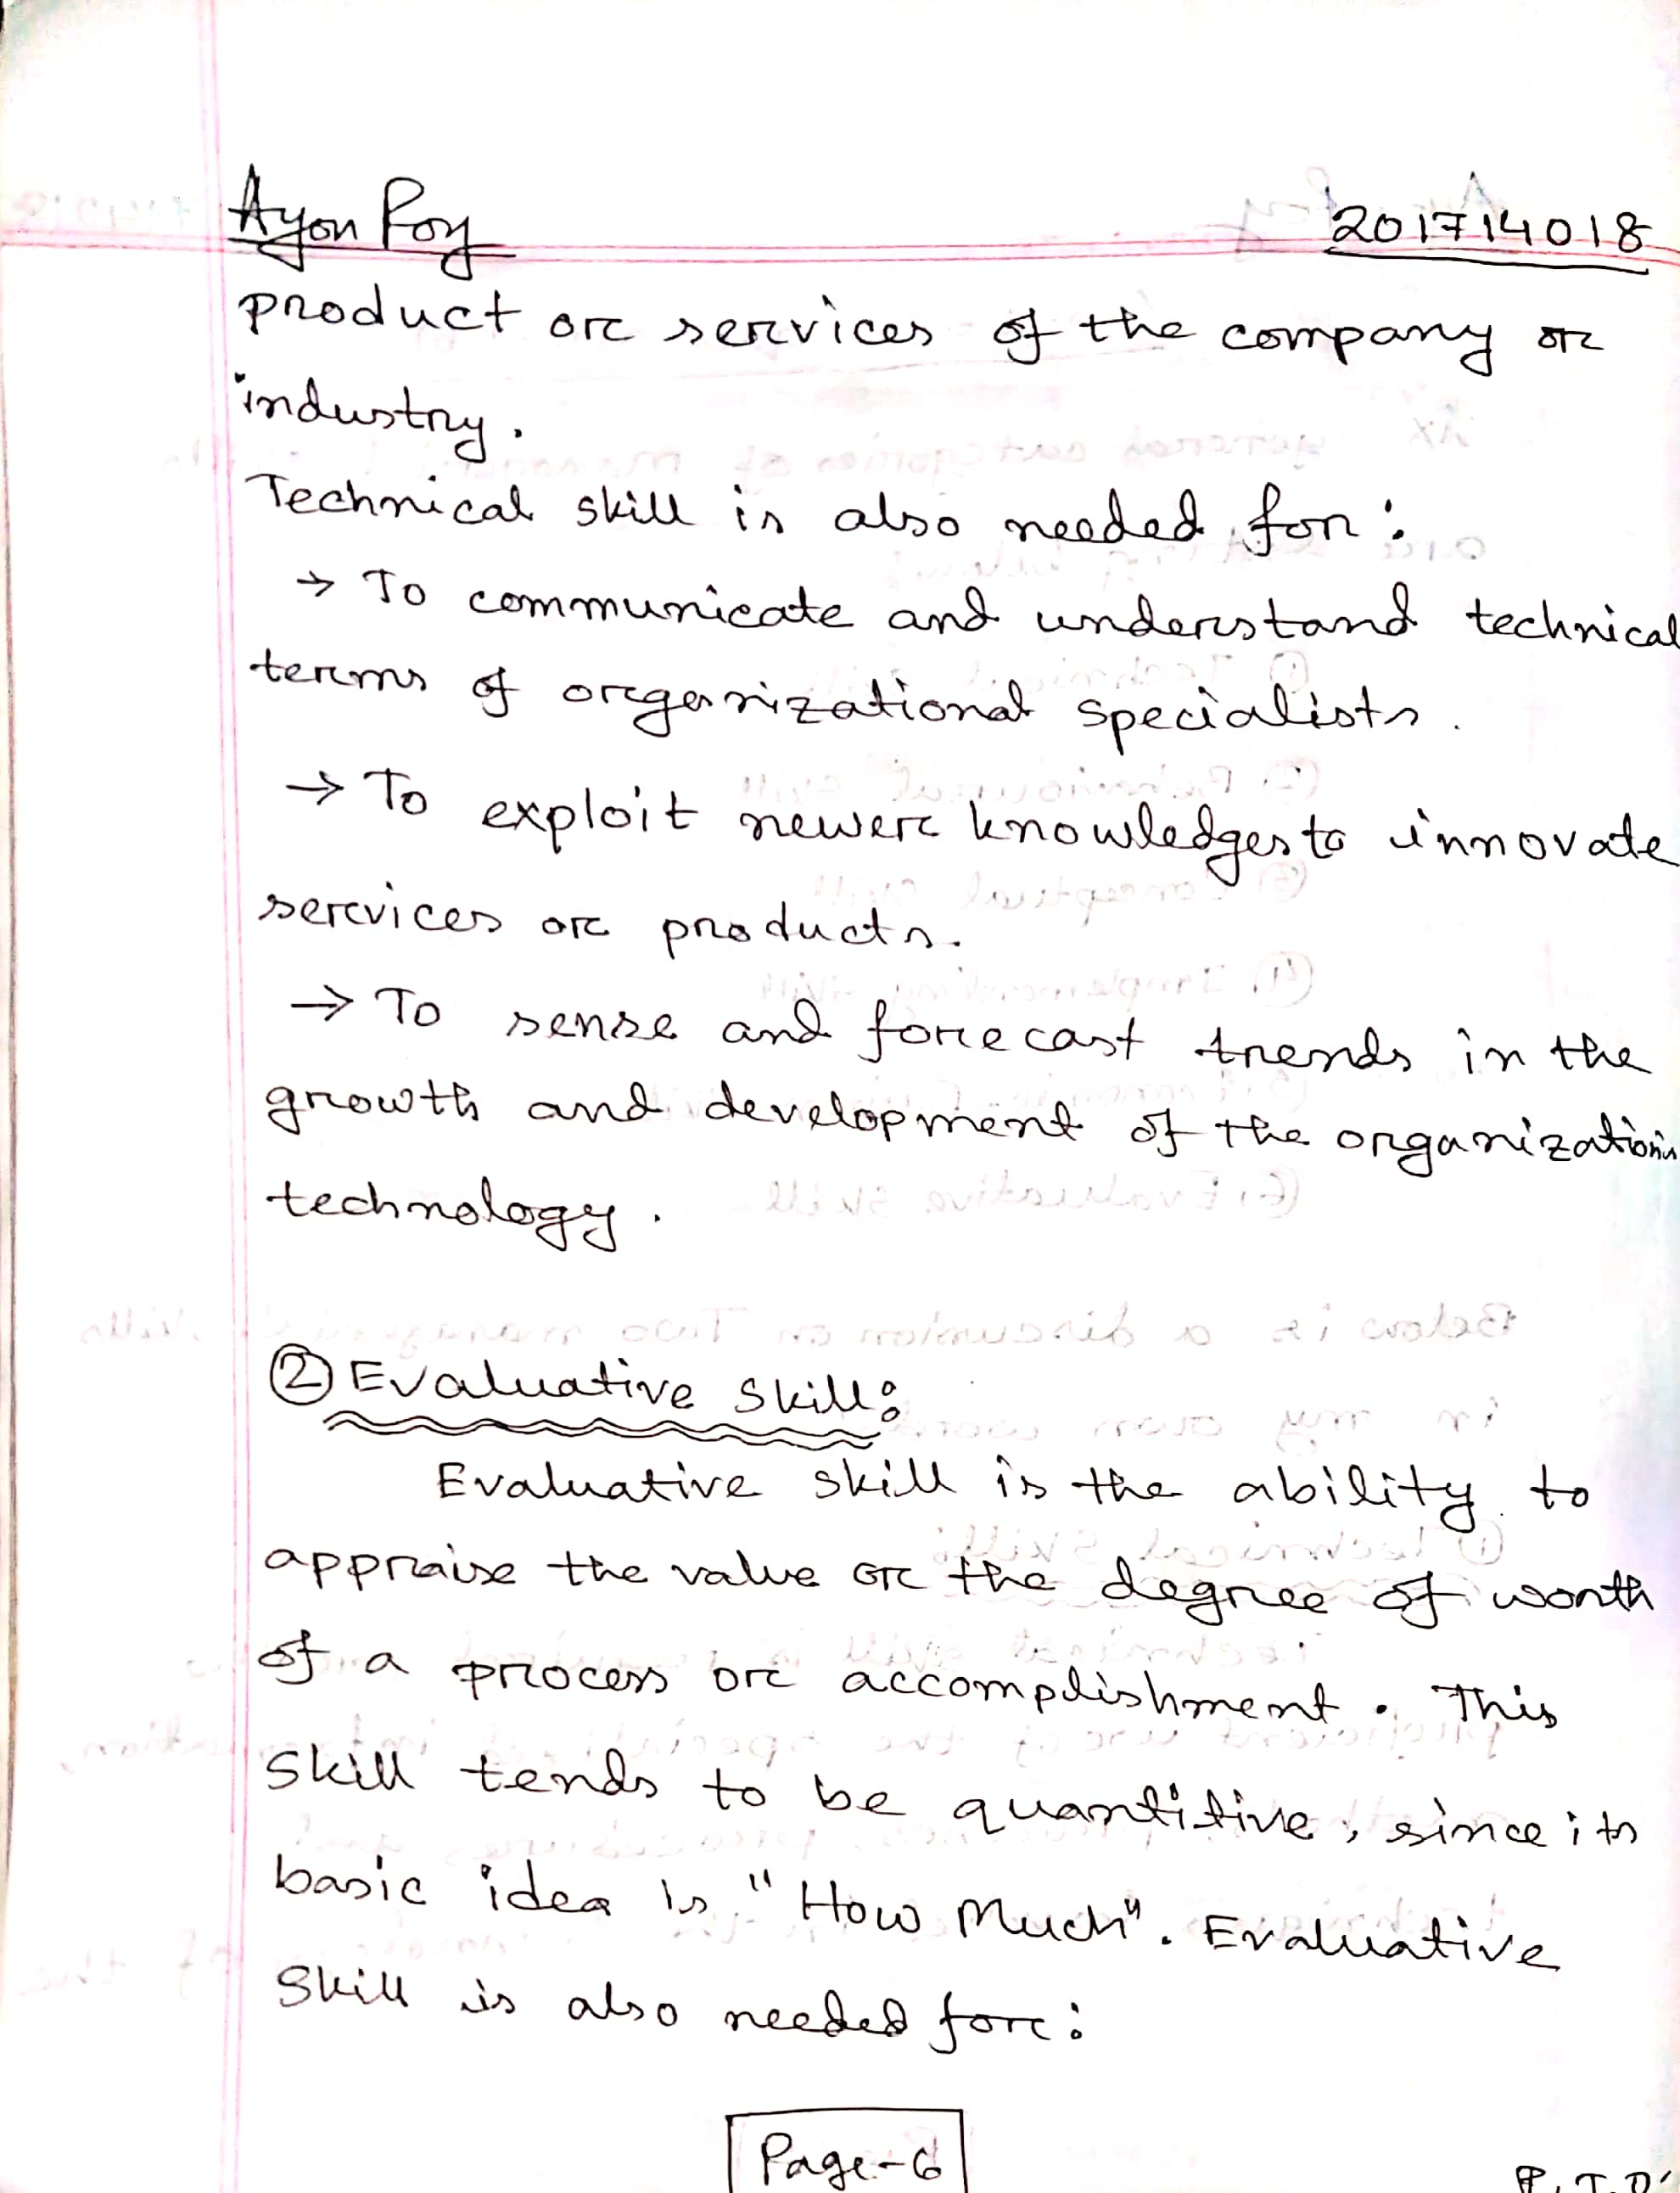 Ayon Roy 201714018
product or services of the company or
industry.
Technical skill is also needed for:
→ To communicate and understand technical
terms of organizational specialists.
→ To exploit newer knowledges to innovate
services or products.
→ To sense and forecast trends in the
growth and development of the organization's
technology.
② Evaluative skill:
Evaluative skill is the ability to
appraise the value or the degree of worth
of a process or accomplishment. This
skill tends to be quantitive, since its
basic idea is "How Much". Evaluative
skill is also needed for:
Page-6
P.T.O'